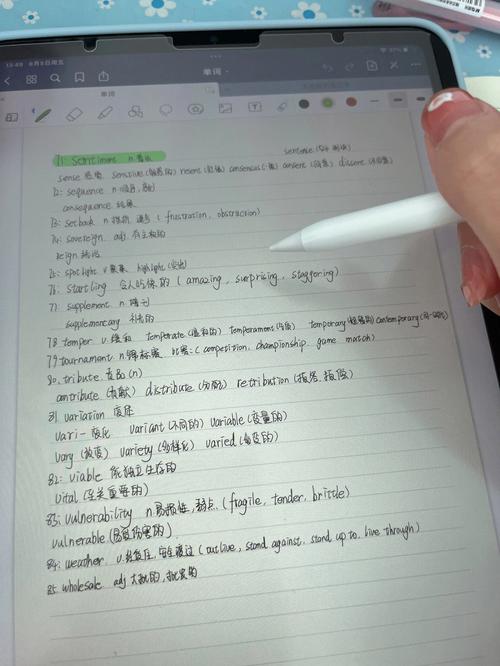 单词
单词
71 sentiment n.
sentence
sense 感觉 sensitive (敏感的) resent consensus consent (同意) dissent
72: sequence n
consequence 结果
73: setback n 挫折 (frustration, obstruction)
74: sovereign adj. 有主权的
Reign 统治
75: spotlight v 聚集 highlight (突出)
76: startling 令人吃惊的 (amazing, surprising, staggering)
77: supplement n
supplementary 补充的
78 temper v. 缓和 temperate (温和的) Temperament temporary contemporary
79 tournament n 锦标赛 比赛: (competition, championship. game match)
80. tribute. 贡品 (n)
contribute (贡献) distribute (分配) retribution
81 variation 变体
vari- 变化 variant (不同的) variable (变量的)
vary (改变) variety (多样化) varied
82: viable 能独立生存的
vital (至关重要的)
83: vulnerability n 易损性, 弱点. (fragile, tender, brittle)
vulnerable (易受伤害的)
84: weather v. (outlive, stand against, stand up to. live through)
85: wholesale adj 大批的, 批发的